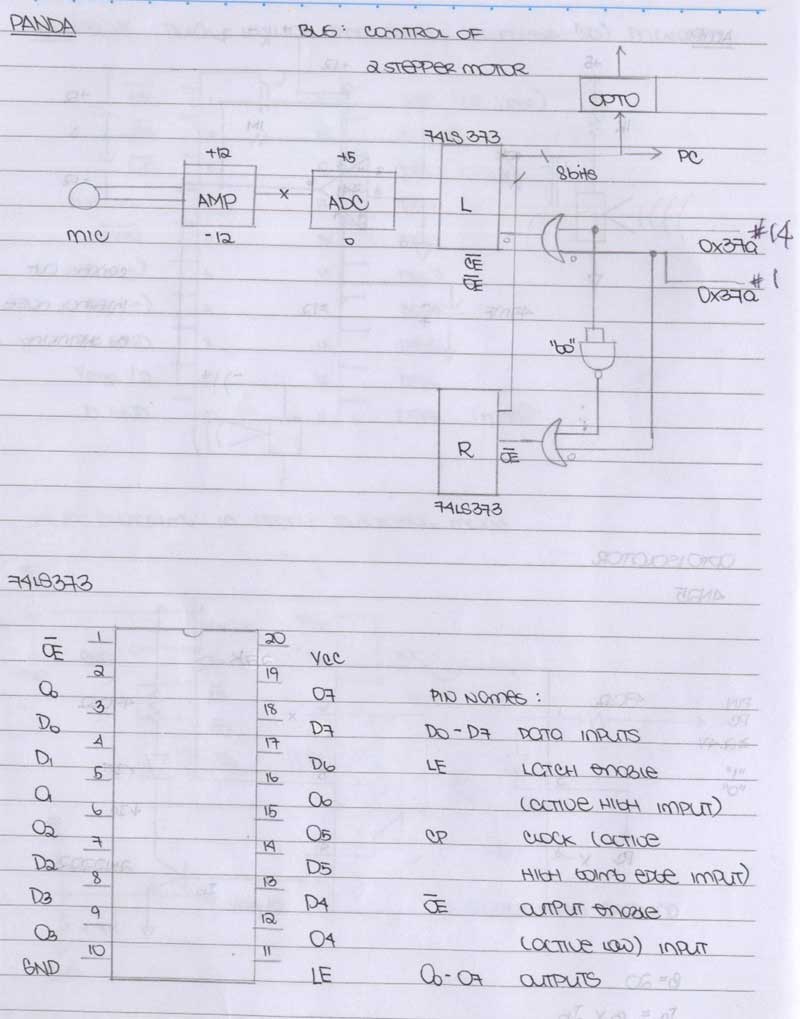 PANDA
BUS: CONTROL OF
2 STEPPER MOTOR
OPTO
74LS373
PC
8bits
+12
AMP
-12
x
+5
ADC
0
L
MIC
CE
OE
#14
0x37a
#1
0x37a
"00"
R
OE
74LS373
74LS373
OE 1 20 VCC
O0 2 19 O7
D0 3 18 D7
D1 4 17 D6
O1 5 16 O6
O2 6 15 O5
D2 7 14 D5
D3 8 13 D4
O3 9 12 O4
GND 10 11 LE
PIN NAMES:
D0-D7 DATA INPUTS
LE LATCH ENABLE
(ACTIVE HIGH INPUT)
CP CLOCK (ACTIVE
HIGH GOING EDGE INPUT)
OE OUTPUT ENABLE
(ACTIVE LOW) INPUT
O0-O7 OUTPUTS